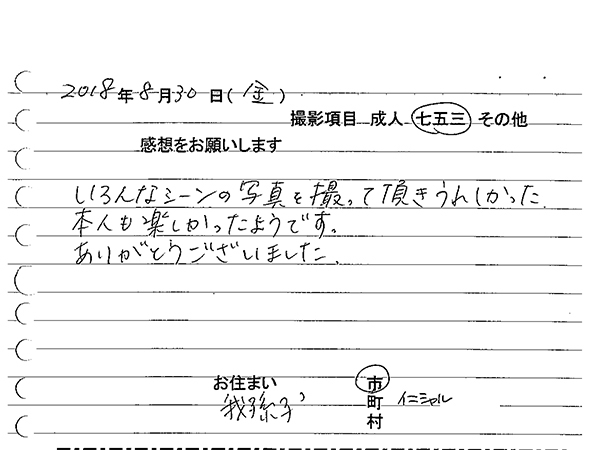 2018年8月30日(金)
撮影項目 成人 七五三 その他
感想をお願いします
いろんなシーンの写真を撮って頂きうれしかった.
本人も楽しかったようです。
ありがとうございました.
お住まい 市
我孫子 町 イニシャル
村